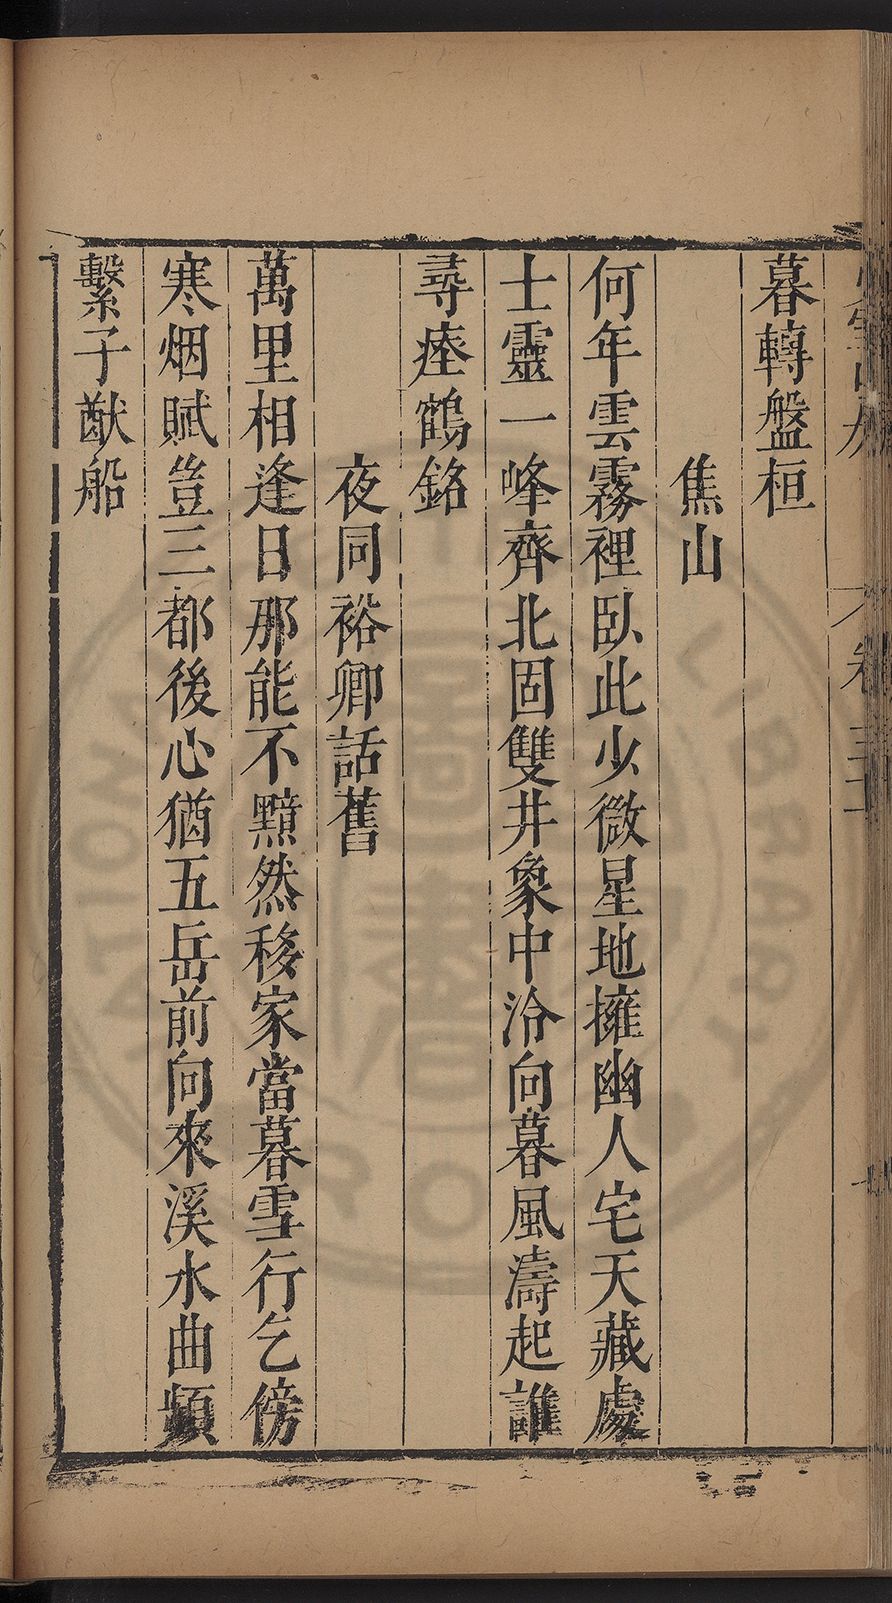 卷三十
暮轉盤桓
焦山
何年雲霧裡臥此少微星地擁幽人宅天藏處
士靈一峰齊北固雙井象中泠向暮風濤起誰
尋瘞鶴銘
夜同裕卿話舊
萬里相逢日那能不黯然移家當暮雪行乞傍
寒烟賦豈三都後心猶五岳前向來溪水曲頻
繫子猷船